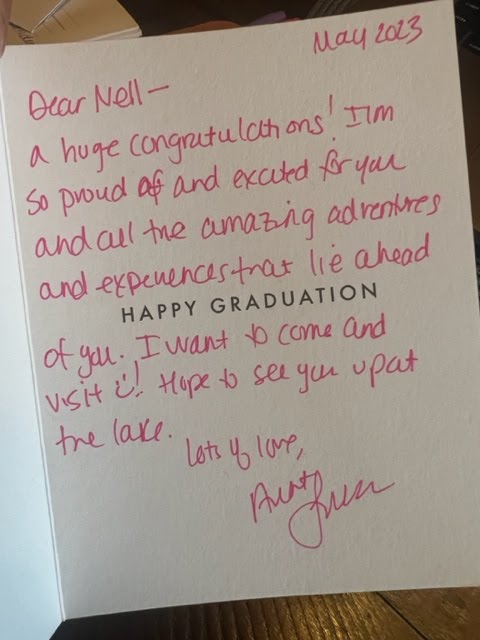 May 2023
Dear Nell —
a huge congratulations! I'm
so proud of and excited for you
and all the amazing adventures
and experiences that lie ahead
HAPPY GRADUATION
of you. I want to come and
visit :)! Hope to see you up at
the lake.
Lots of love,
Aunt